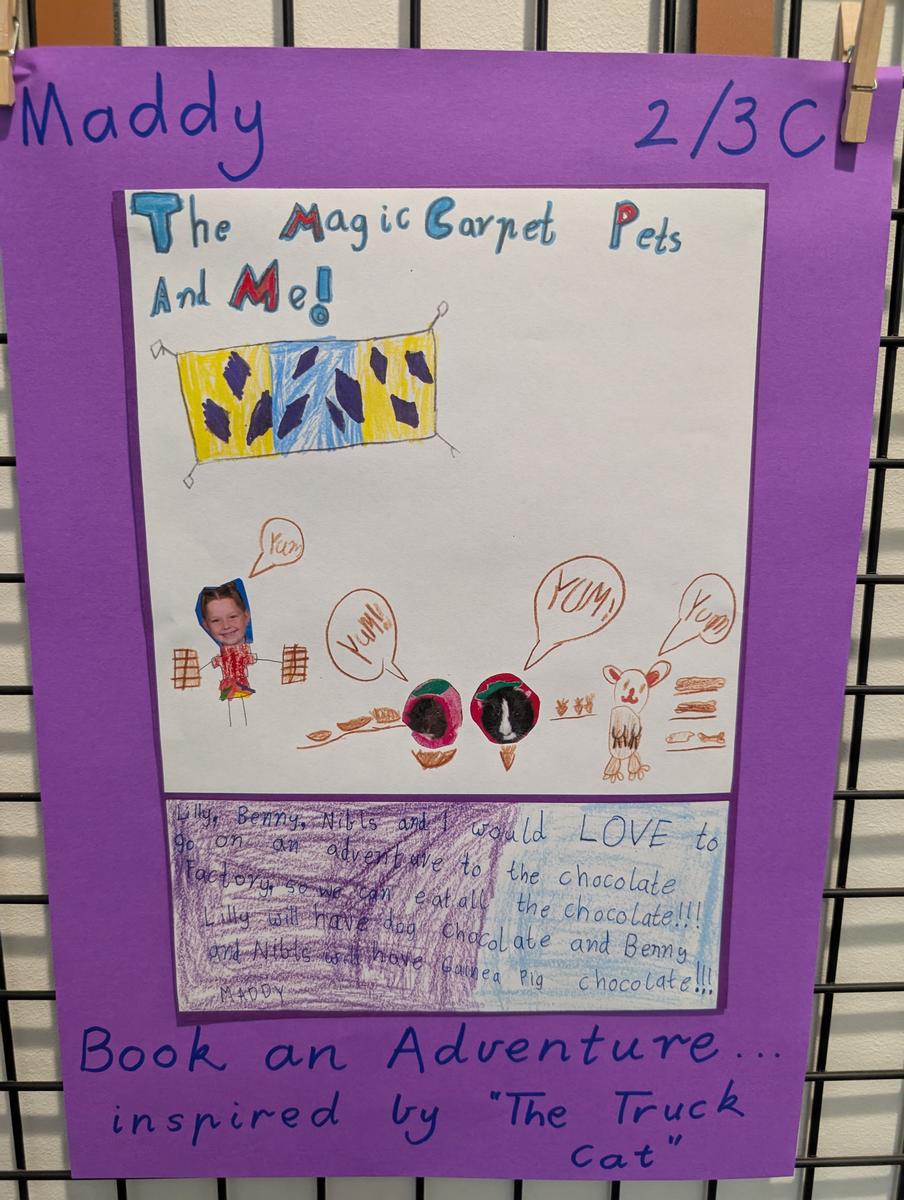 Maddy 2/3 C
The Magic Carpet Pets
And Me!
Yum
YUM!!
YUM!
Yum
Lilly, Benny, Nibls and I would LOVE to
go on an adventure to the chocolate
Factory, so we can eat all the chocolate!!!
Lilly will have dog chocolate and Benny
and Nibls will have Guinea Pig chocolate!!!
MADDY
Book an Adventure...
inspired by "The Truck
Cat"